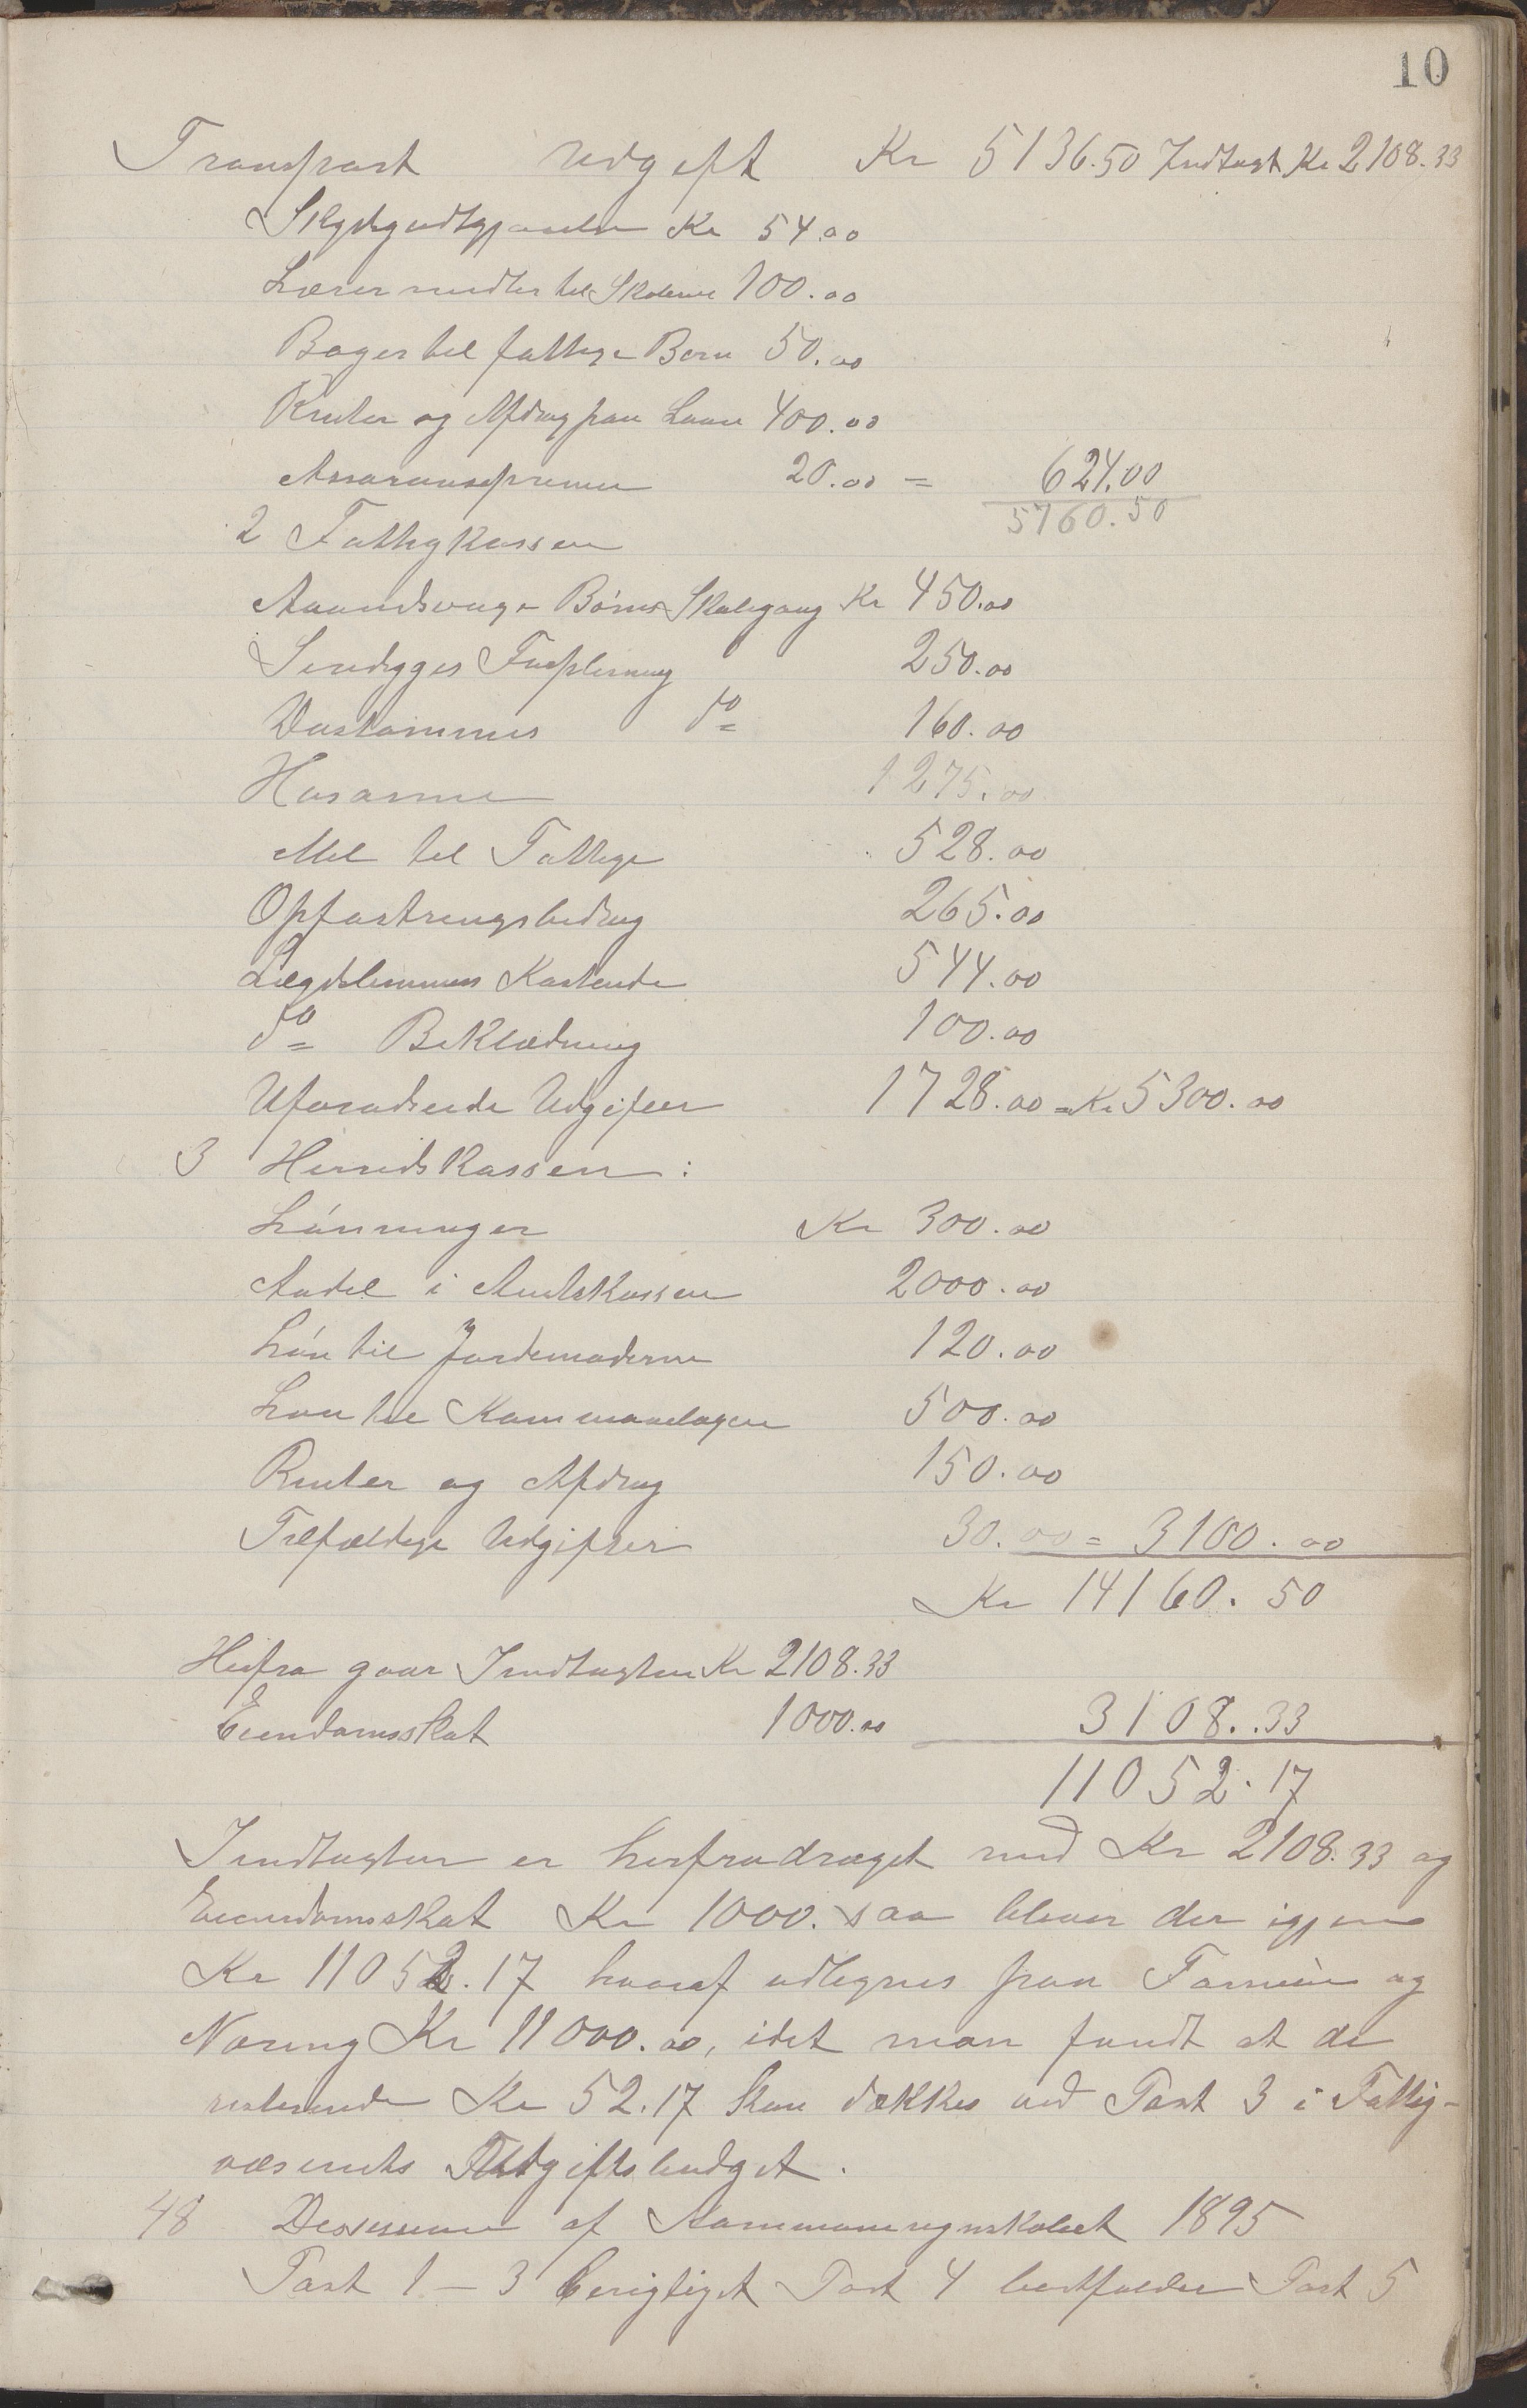 10
Transport Udgift Kr 5136.50 Indtægt Kr 2108.33
Skydsgodtgjørelse Kr 54.00
Læremidler til Skolerne 100.00
Bøger til fattige Børn 50.00
Renter og Afdrag paa Laan 400.00
Assuransepremie 20.00 = 624.00
5760.50
2 Fattigkassen
Aandsvage Børns Skolegang Kr 450.00
Sindsyges Forplejning 250.00
Vanfømmes do 160.00
Husarme 1275.00
Mel til Fattige 528.00
Opfostringsbidrag 265.00
Lægdslemmers Kostende 544.00
do Beklædning 100.00
Uforudseede Udgifter 1728.00 = Kr 5300.00
3 Herredskassen :
Lønninger Kr 300.00
Andel i Amtskassen 2000.00
Løn til Jordemoderen 120.00
Løn til Kommunelægen 500.00
Renter og Afdrag 150.00
Tilfældige Udgifter 30.00 = 3100.00
Kr 14160.50
Herfra gaar Indtægten Kr 2108.33
Eiendomsskat 1000.00 3108.33
11052.17
Indtægten er herfradraget med Kr 2108.33 og
Eiendomsskat Kr 1000. saa bliver der igjen
Kr 11052.17 hvoraf udlignes paa Formue og
Næring Kr 11000.00, idet man fandt at de
resterende Kr 52.17 kan dækkes ved Post 3 i Fattig-
væsenets Udgiftsbudget.
48 Desission af Kommuneregnskabet 1895
Post 1 - 3 berigtiget Post 4 bortfalder Post 5